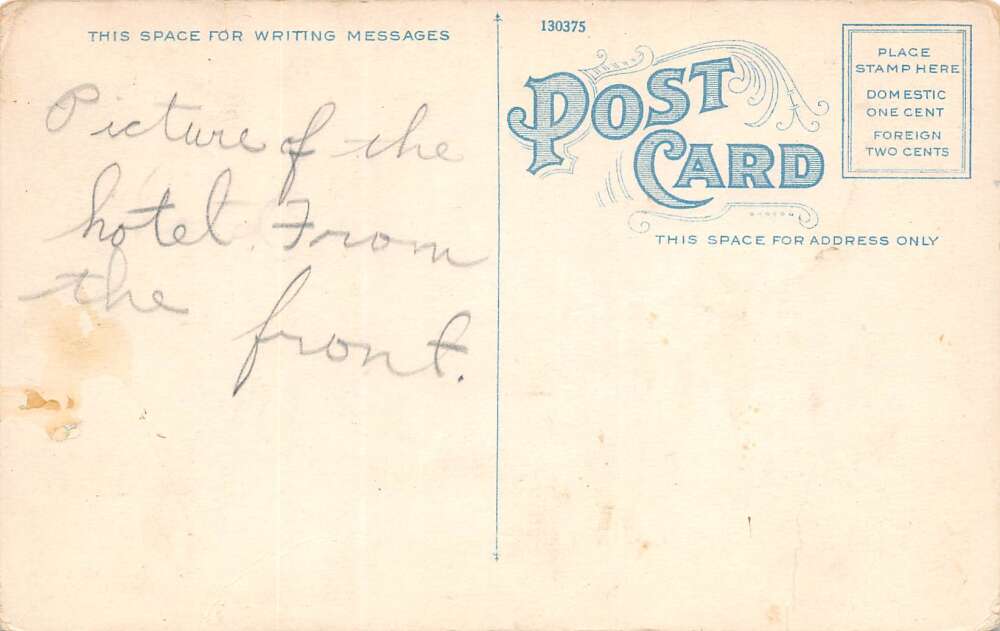 THIS SPACE FOR WRITING MESSAGES
Picture of the
hotel From
the front.
130375
POST
CARD
THIS SPACE FOR ADDRESS ONLY
PLACE
STAMP HERE
DOMESTIC
ONE CENT
FOREIGN
TWO CENTS